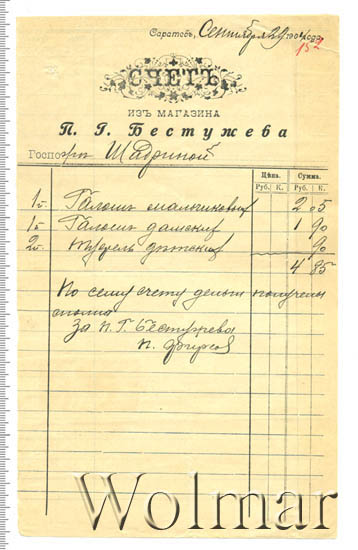 Саратовъ, Сентября 29 1904 года
152
СЧЕТЪ
ИЗЪ МАГАЗИНА
П. Г. Бестужева
Госпо жѣ Шадриной
Цѣна. Сумма.
Руб. К. Руб. К.
1 п. Галошъ мальчиковых 2 05
1 п. Галошъ дамских 1 90
2 п. дѣтских 90
4 85
По сему счету деньги получены
сполна
За П. Г. Бестужева
П.
Wolmar